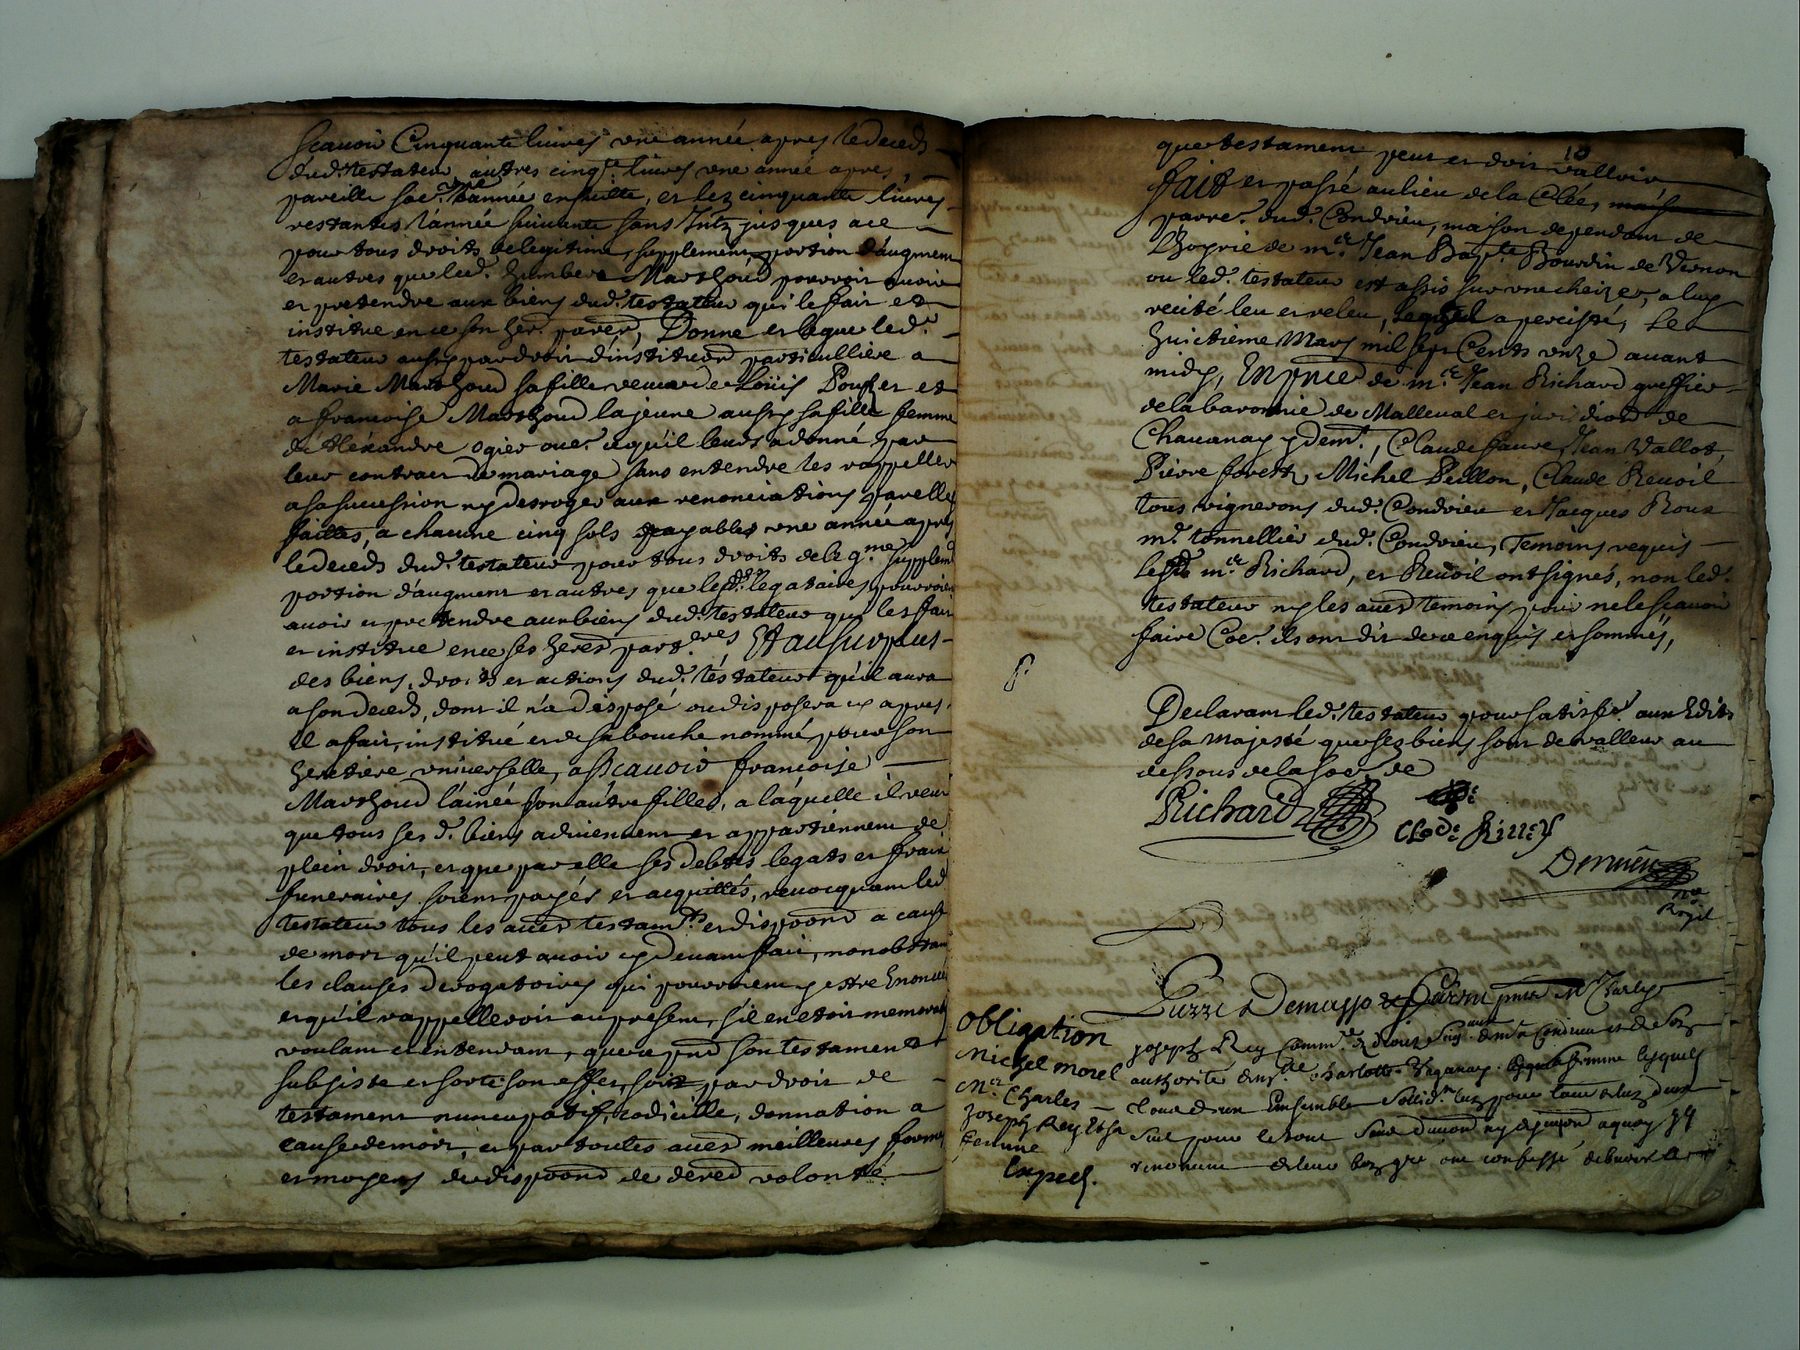 Scavoir Cinquante livres une année apres le deceds
dud. testateur, autres cinq.te livres une année apres,
pareille so.e l'année ensuitte, et lez cinquante livres
restantes l'année suivante sans Intz jusques a ce
pour tous droits de legitime, supplement, portion d'augment
et autres que led. humbert Marthoud pourroit avoir
et pretendre aux biens dud. testateur qui le fait et
institue en ce son her. par.er, Donne et legue led.
testateur aussy par droit d'institution particulliere a
Marie Marthoud sa fille veuve de Loüis
a francoise Marthoud la jeune aussy sa fille femme
d'Alexandre ogier outre ce qu'il leurs a donné par
leur contract de mariage sans entendre les rappeller
a sa succession ny desroger aux renonciations par elles
faittes, a chacune cinq sols payables une année apres
le deceds dud. testateur pour tous droits de leg.me supplem.t
portion d'augment et autres que lesd. legataires pourroient
avoir et pretendre aux biens dud. testateur qui les fait
et institue en ce ses hered part.eres Et au surplus
des biens, droits et actions dud. testateur qu'il aura
a son deceds, dont il n'a disposé ou disposera cy apres,
Il a fait, institué et de sa bouche nommé pour son
heretiere universelle, a Scavoir françoise
Marthoud l'ainée son autre fille, a laquelle il veut
que tous ses d. biens adviennent et appartiennent de
plein droit, et que par elle ses debtes legats et frais
funeraires soient payés et acquittés, revocquant led
testateur tous les autres testam.ts et dispoons a cause
de mort qu'il peut avoir cy devant fait, nonobstant
les clauses derogatoires qui pourroient y estre Enoncées
et qu'il rappelleroit au present, s'il en etoit memoratif
voulant et entendant, que ce pnt son testament
subsiste et sorte son effet, soit par droit de
testament nuncupatif, codicille, donnation a
cause de mort, et par toutes autres meilleures formes
et moyens de dispoon de dered volonté
10
que testament peut et doit valloir
fait et passé au lieu de la Clée, maison
parr.e dud. Condrieu, maison dependant de
l'hoyrie de m.re Jean Bap.te Bourdin de Vernon
ou led. testateur est assis sur une cheize, a luy
recité leu et releu, a percisté, Le
huictieme Mars mil sept Cents unze avant
midy, En pnce de m.re Jean Richard greffier
de la baronnie de Malleval et jurisdiction de
Chavanay y dem.t, Claude faure, Jean Vallot,
Pierre forest, Michel Peillon, Claude Revoil
tous vignerons dud. Condrieu et Jacques Roux
m.e tonnellier dud. Condrieu, Temoins requis
lesd m.re Richard, et Revoil ont signés, non led.
testateur ny les autres temoins pour ne le sçavoir
faire Co.e ils ont dit de ce enquis et sommés,
Declarant led. testateur pour satisfe. aux Edits
de sa Majesté que ses biens sont de valleur au
dessous de la so.e de
Richard
Royal
Obligation
Michel Morel
M.re Charles
Joseph Rey et sa
femme
Exped.
M.e Charles
Joseph Rey de Condrieu et de son
authorité Charlotte sa femme lesquels
l'un d'eux Ensemble solid.nt l'un pour l'autre et l'un d'eux
seul pour le tout Sans division ny a quoy
renoncent de leur bon gré ont confessé debvoir